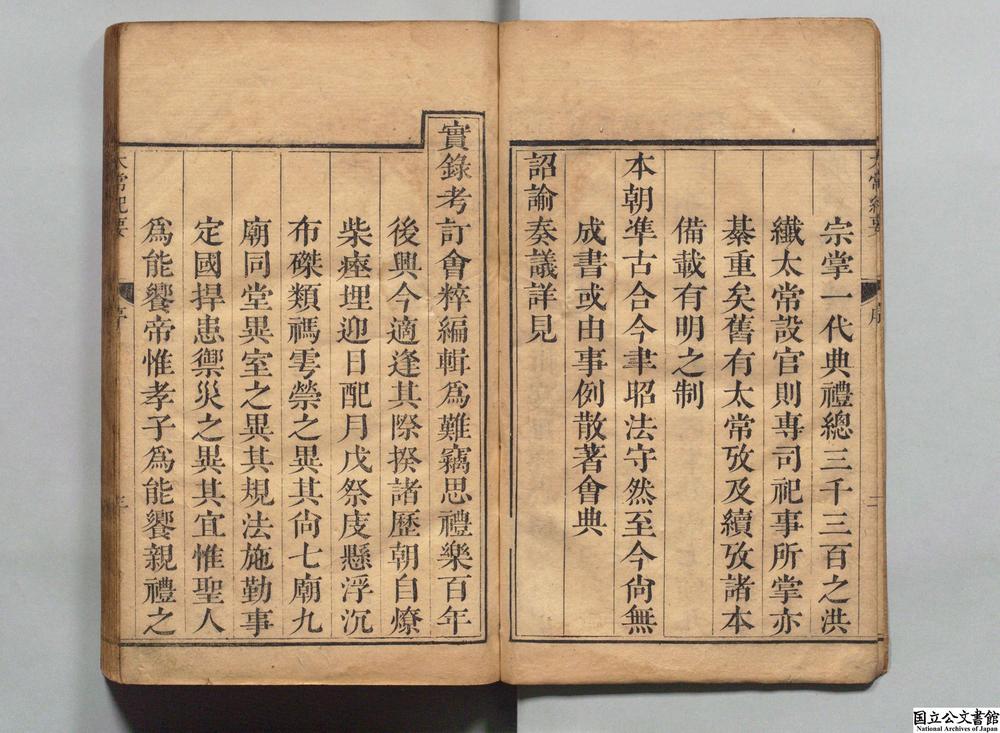 宗掌一代典禮總三千三百之洪
纖太常設官則專司祀事所掌亦
綦重矣舊有太常攷及續攷諸本
備載有明之制
本朝準古合今聿昭法守然至今尙無
成書或由事例散著會典
詔諭奏議詳見
實錄考訂會粹編輯爲難竊思禮樂百年
後興今適逢其際揆諸歷朝自燎
柴瘞埋迎日配月戊祭庋懸浮沉
布磔類禡雩禜之異其尙七廟九
廟同堂異室之異其規法施勤事
定國捍患禦災之異其宜惟聖人
爲能饗帝惟孝子爲能饗親禮之
太常紀要
序
二
太常紀要
序
三
国立公文書館
National Archives of Japan